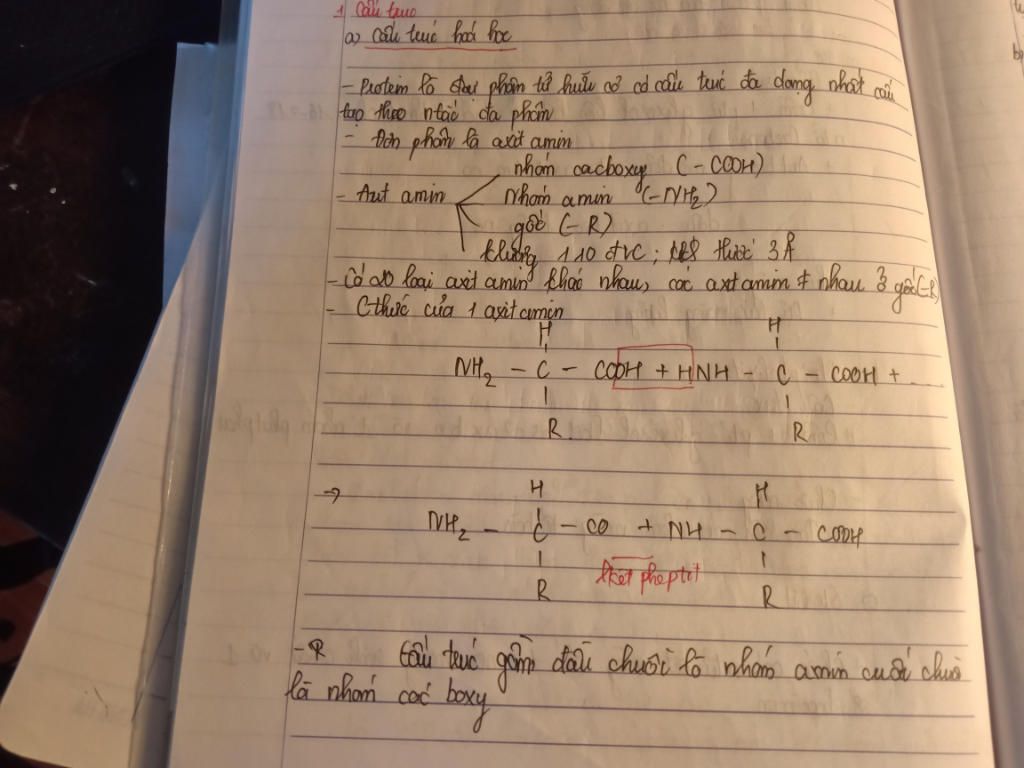 1 Cấu trúc
a) Cấu trúc hoá học
- Protein là đại phân tử hữu cơ có cấu trúc đa dạng nhất cấu
tạo theo ntắc đa phân
- Đơn phân là axit amin
nhóm cacboxy (-COOH)
- Axit amin Nhóm amin (-NH2)
gốc (-R)
klượng 110 đvC; thước 3Å
- Có 20 loại axit amin khác nhau, các axit amin ≠ nhau ở gốc (-R)
- Cthức của 1 axit amin
H H
NH2 - C - COOH + HNH - C - COOH + ...
R R
→ H H
NH2 - C - CO + NH - C - COOH
lkết pheptit
R R
- Cấu trúc gồm đầu chuỗi là nhóm amin cuối chuỗi
là nhóm các boxy